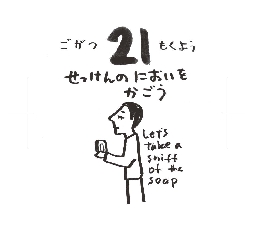 ごがつ 21 もくよう
せっけんの においを
かごう
Let's
take a
sniff
of the
soap